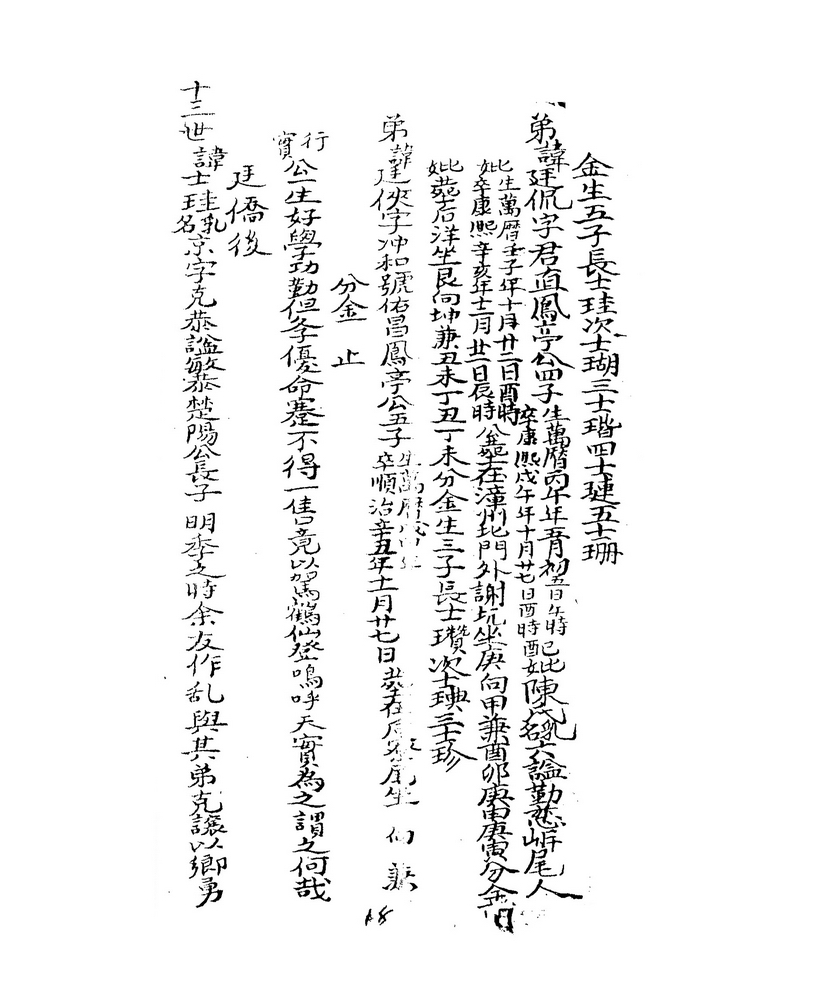 金生五子長士珪次士瑚三士瑎四士璉五士珊
弟諱廷侃字君直鳳亭公四子生萬曆丙午年五月初五日午時
卒康熙戊午年十月廿七日酉時
配妣陳氏乳名六謚勤慈嶼尾人
妣生萬曆壬子年十月廿二日酉時
妣卒康熙辛亥年十二月廿一日辰時
公墓在漳州北門外謝坑坐庚向甲兼酉卯庚申庚寅分金
妣墓在后洋坐艮向坤兼丑未丁丑丁未分金生三子長士瓚次士琠三士珍
弟諱廷俠字冲和號佑昌鳳亭公五子生萬曆戊申年
卒順治辛丑年十一月廿七日
墓在后 尾坐 向 兼
分金 止
行實 公一生好學功勤但冬優命蹇不得一售竟以駕鶴仙登嗚呼天實為之謂之何哉
廷僑後
十三世諱士珪乳名京字克恭謚敏恭楚陽公長子明季之時余友作乱與其弟克讓以鄉勇
18